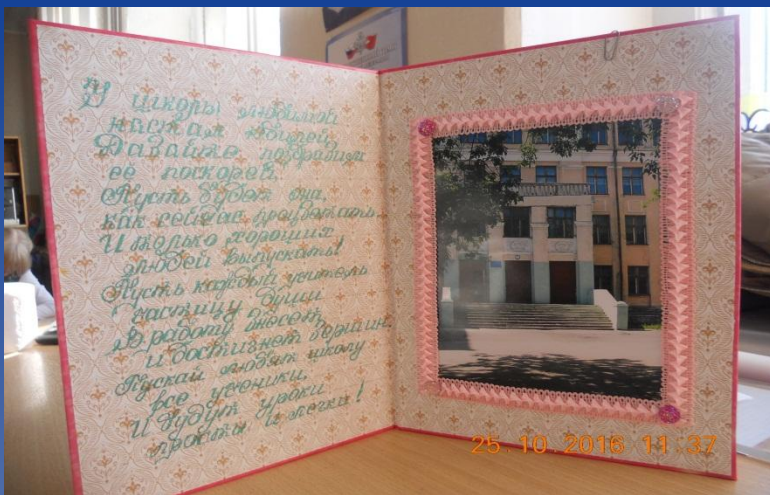 У школы любимой
настал юбилей
Давайте поздравим
ее поскорей.
Пусть будет она,
как сейчас процветать
И только хороших
людей выпускать!
Пусть каждый учитель
частицу души
В работу внесет,
и достигнет вершин.
Пускай любят школу
все ученики,
И будут уроки
просты и легки!
25.10.2016 11:37